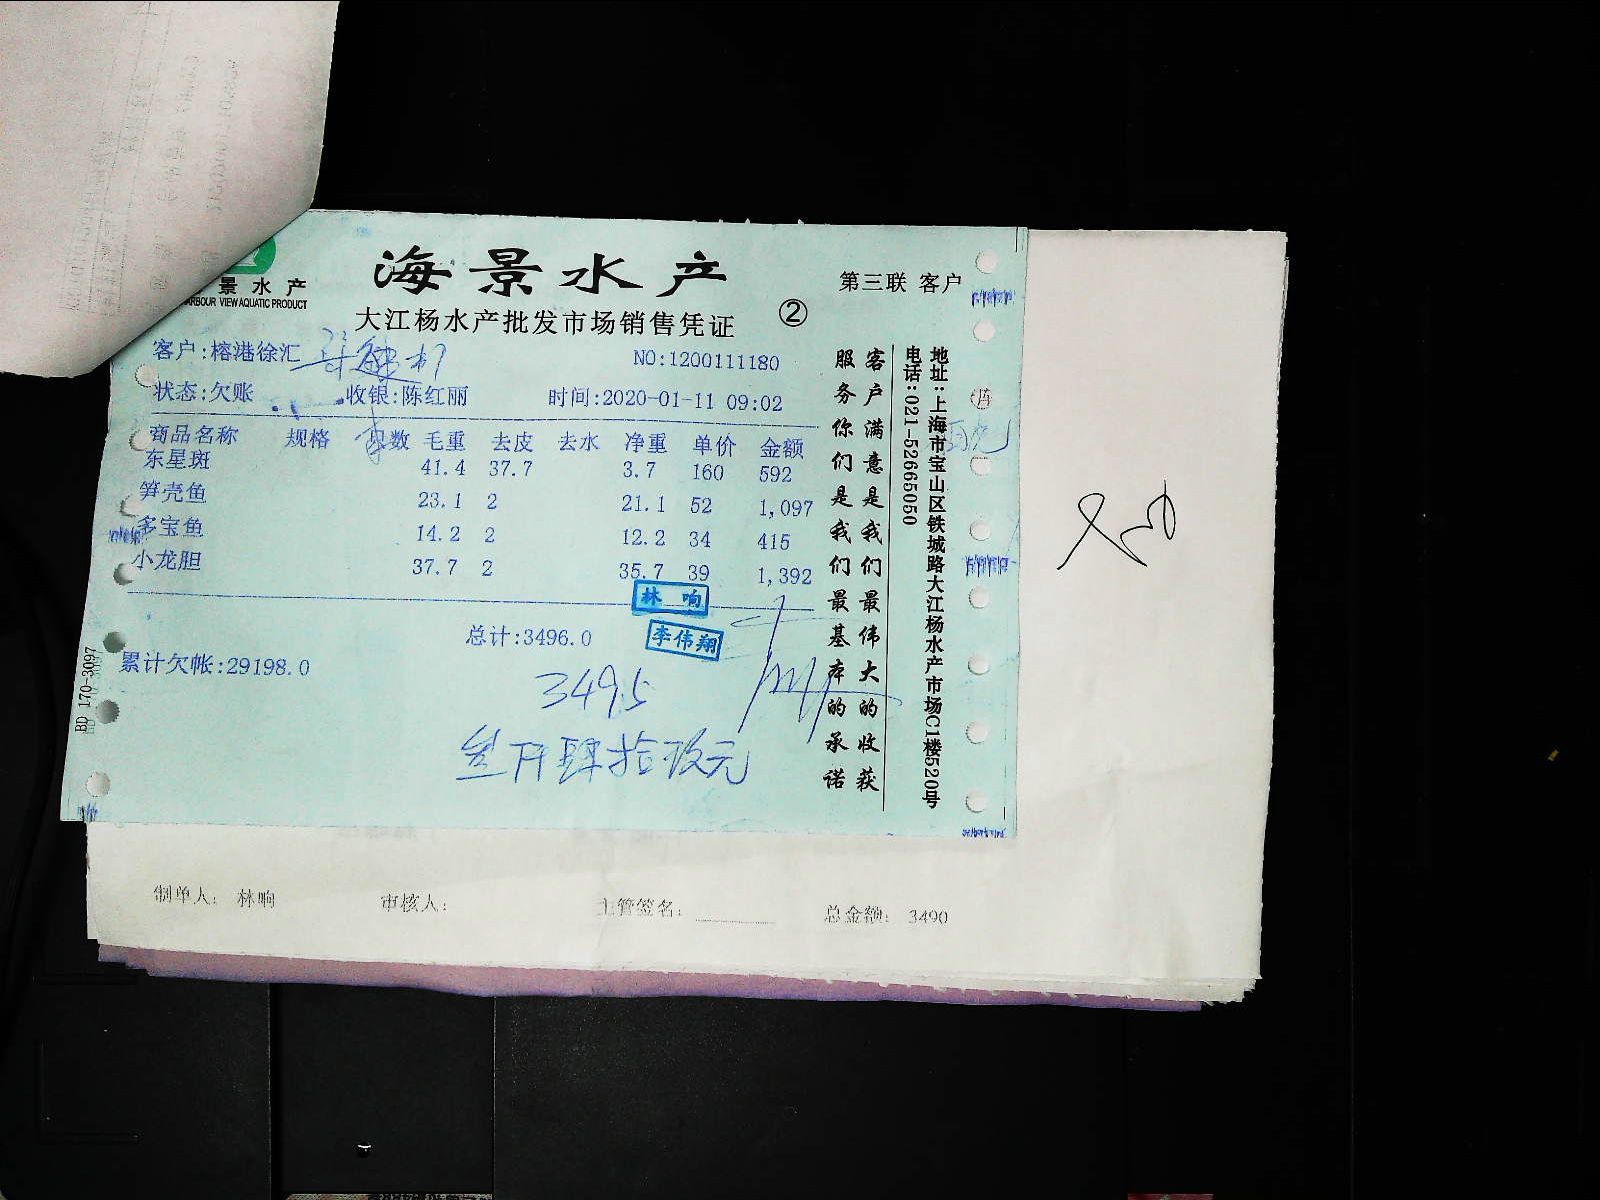 海景水产
景水产
ARBOUR VIEW AQUATIC PRODUCT
第三联 客户
大江杨水产批发市场销售凭证 ②
客户:榕港徐汇
NO:1200111180
状态:欠账 收银:陈红丽 时间:2020-01-11 09:02
商品名称 规格 只数 毛重 去皮 去水 净重 单价 金额
东星斑 41.4 37.7 3.7 160 592
笋壳鱼 23.1 2 21.1 52 1,097
多宝鱼 14.2 2 12.2 34 415
小龙胆 37.7 2 35.7 39 1,392
林响
总计:3496.0
李伟翔
累计欠帐:29198.0
3495
BD 170-3097
客户满意是我们最伟大的收获
服务你们是我们最基本的承诺
地址:上海市宝山区铁城路大江杨水产市场C1楼520号
电话:021-52665050
制单人: 林响 审核人: 主管签名: 总金额: 3490